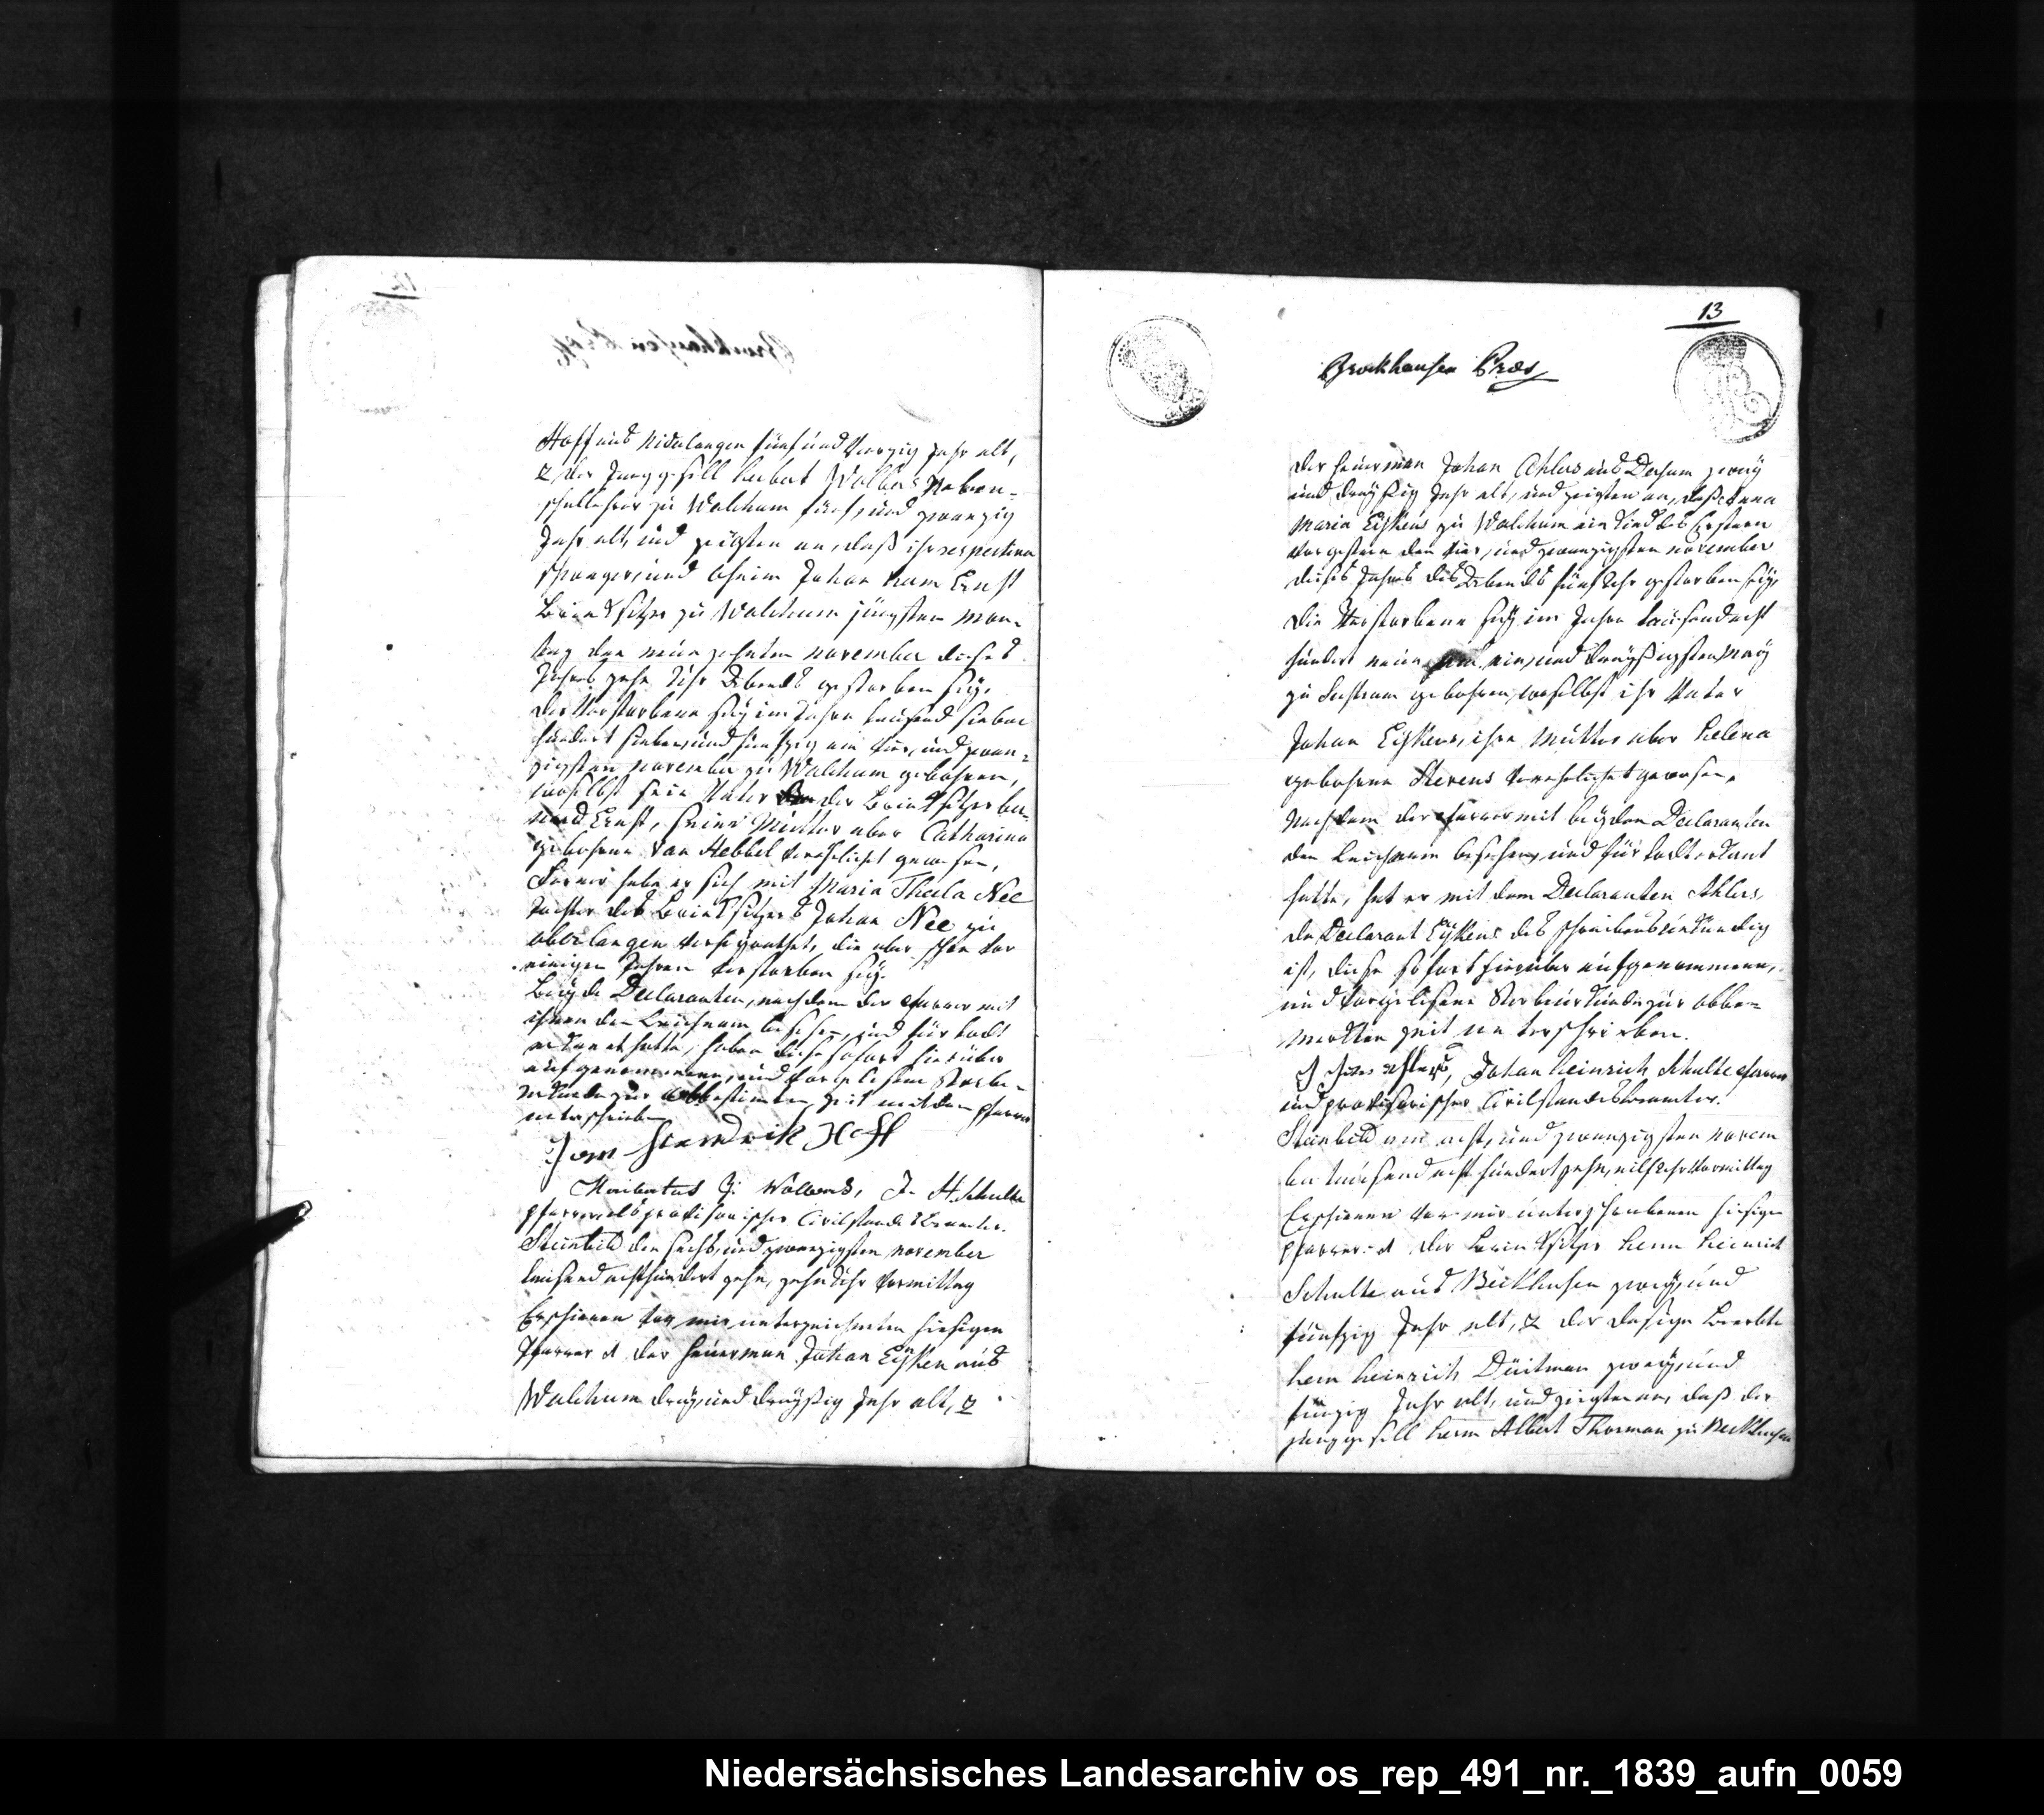 Hoff aus Nidulangen fünf und vierzig Jahr alt,
2 der Junggesell Herbert Wolbers Neben-
schullehrer zu Walchum fünf, und zwanzig
Jahr alt, und zeigten an, daß ihr respective
Schwager, und Oheim Johan Herm Ernst
Brinksitzer zu Walchum jüngsten Mon-
tag den neunzehnten november dieses
Jahrs zehn Uhr Abends gestorben sey.
Der Verstorbene sey im Jahre tausend sieben
hundert sieben, und fünfzig am vier, und zwan-
zigsten november zu Walchum gebohren,
woselbst sein Vater der Brinksitzer Ber-
nard Ernst, seine Mutter aber Catharina
gebohrne Van Hebbel verehelicht gewesen,
Ferner habe er sich mit Maria Thecla Nee
Tochter des Brinksitzers Johan Nee zu
oberlangen verheyrathet, die aber schon vor
einigen Jahren verstorben sey.
Beyde Declaranten, nachdem der Pfarrer mit
ihnen den Leichnam besehen, und für todt
erkannt hatte, haben diese sofort hierüber
aufgenommene, und vorgelesene Sterbe-
urkunde zur obbestimten Zeit mit dem Pfarrer
unterschrieben
Jan Hendrik Hoff
Heribertus G. Wolbers, J. H. Schulte
Pfarrer als provisorischer Civilstandsbeamter.
Steinbild den sechs, und zwanzigsten november
tausend achthundert zehn, zehn Uhr Vormittag
Erschienen vor mir unterzeichneten hiesigen
Pfarrer 1 der Heuerman Johan Eijken aus
Walchum drey, und dreyßig Jahr alt, 2
13
Brockhausen Præs
der Heuerman Johan Ahlers aus Dersum zwey
und dreyßig Jahr alt, und zeigten an, daß Anna
Maria Eijkens zu Walchum ein Kind des Ersteren
vorgestern den vier, und zwanzigsten november
dieses Jahres des Abends fünf Uhr gestorben sey,
Die Verstorbene sey im Jahre tausend acht
hundert neun am ein, und dreyßigsten May
zu gebohren, woselbst ihr Vater
Johan Eijkens, ihre Mutter aber Helena
gebohrene Stevens verehelichet gewesen.
Nachdem der Pfarrer mit beyden Declaranten
den Leichnam besehen, und für todt erkant
hatte, hat er mit dem Declaranten Ahlers,
da Declarant Eijkens des schreibens unkundig
ist, diese sofort hierüber aufgenommene,
und vorgelesene Sterbeurkunde zur obbe-
meldten Zeit unterschrieben.
Johan Heinrich Schulte Pfarrer
und provisorischer Civilstandesbeamter.
Steinbild am acht, und zwanzigsten novem
ber tausend acht hundert zehn, eilf Uhr Vormittag
Erschienen vor mir unterschriebenen hiesigen
Pfarrer 1 der Brinksitzer Herm Heinrich
Schulte aus zwey, und
fünfzig Jahr alt, 2 der dasige Beerbte
Herm Heinrich Düitman zwey, und
Jahr alt, und zeigten an, daß der
Junggesell Herm Albert Thorman zu
Niedersächsisches Landesarchiv os_rep_491_nr._1839_aufn_0059